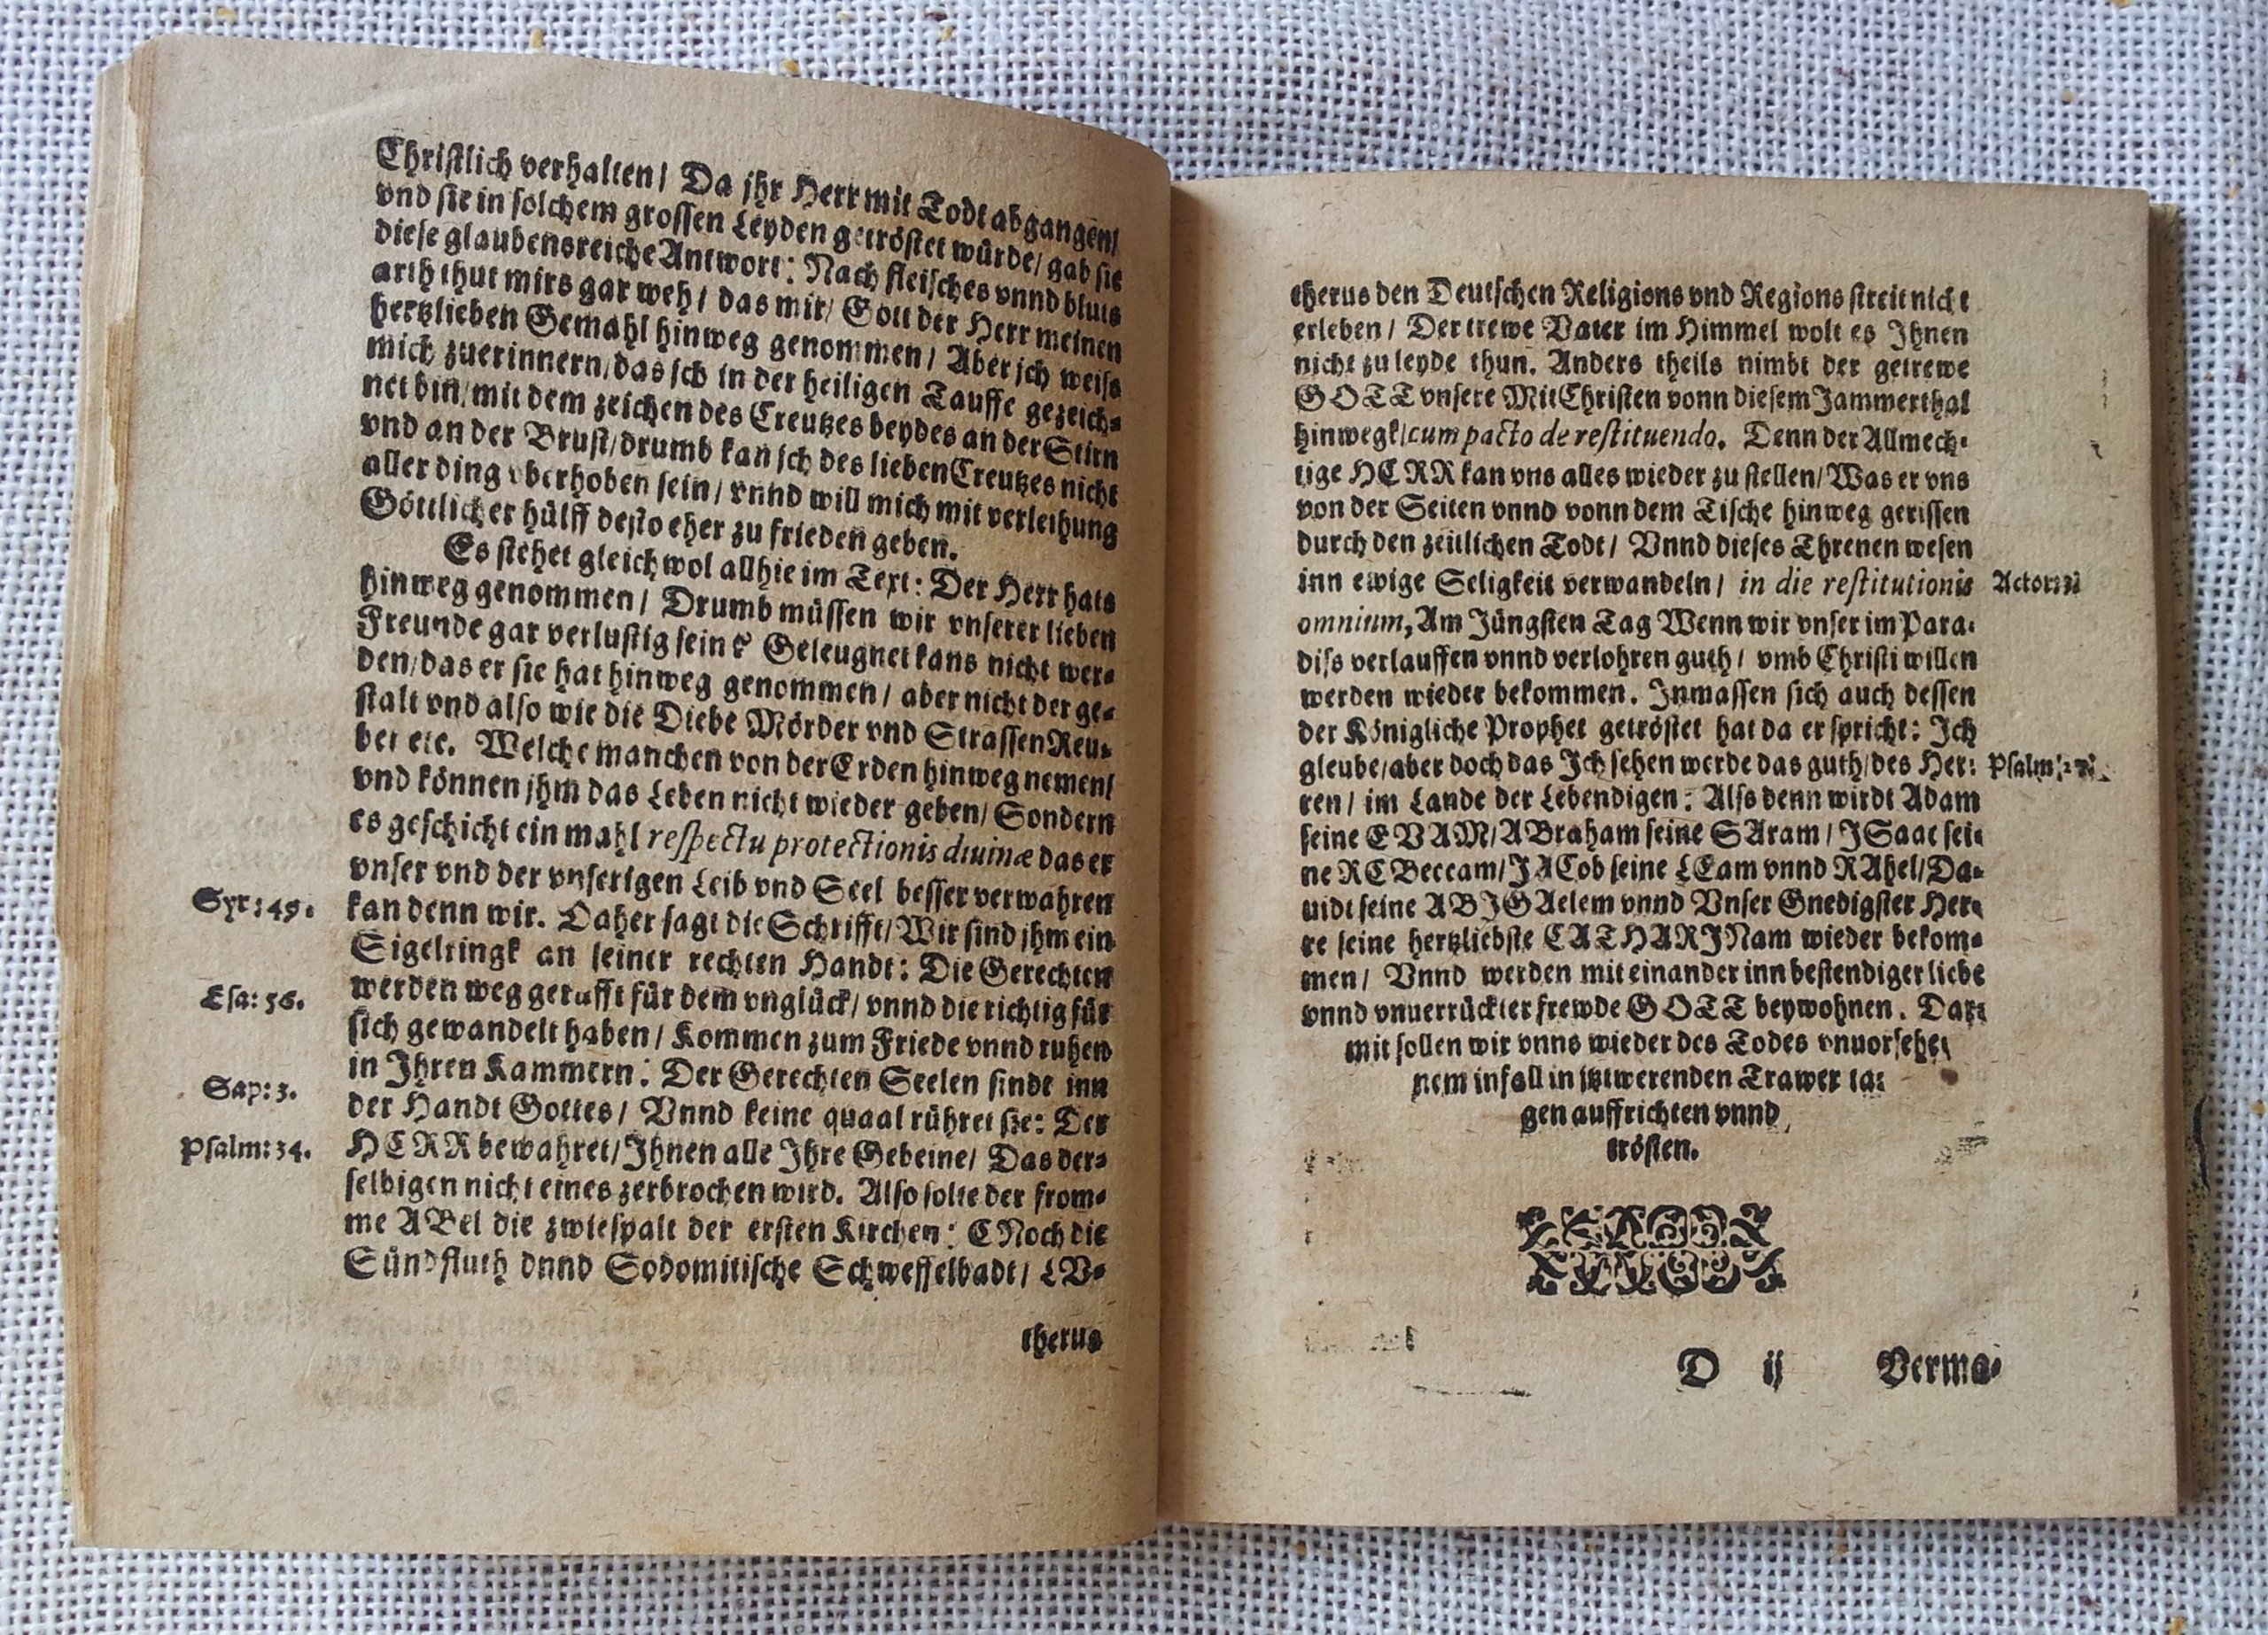 Christlich verhalten/ Da jhr Herr mit Todt abgangen/
vnd sie in solchem grossen Leyden getröstet würde/ gab sie
diese glaubensreiche Antwort: Nach fleisches vnnd bluts
arth thut mirs gar weh/ das mir/ Gott der Herr meinen
hertzlieben Gemahl hinweg genommen/ Aber jch weiss
mich zuerinnern/ das jch in der heiligen Tauffe gezeich-
net bin/ mit dem zeichen des Creutzes beydes an der Stirn
vnd an der Brust/ drumb kan jch des lieben Creutzes nicht
aller ding vberhoben sein/ vnnd will mich mit verleihung
Göttlicher hülff desto eher zu frieden geben.
Es stehet gleich wol allhie im Text: Der Herr hats
hinweg genommen/ Drumb müssen wir vnserer lieben
Freunde gar verlustig sein? Geleugnet kans nicht wer-
den/ das er sie hat hinweg genommen/ aber nicht der ge-
stalt vnd also wie die Diebe Mörder vnd StrassenReu-
ber etc. Welche manchen von der Erden hinweg nemen/
vnd können jhm das Leben nicht wieder geben/ Sondern
es geschicht ein mahl respectu protectionis diuinæ das er
vnser vnd der vnserigen Leib vnd Seel besser verwahren
Syr: 49. kan denn wir. Daher sagt die Schrifft/ Wir sind jhm ein
Sigelringk an seiner rechten Handt: Die Gerechten
Esa: 56. werden weg gerafft für dem vnglück/ vnnd die richtig für
sich gewandelt haben/ Kommen zum Friede vnnd ruhen
in Ihren Kammern: Der Gerechten Seelen sindt inn
Sap: 3. der Handt Gottes/ Vnnd keine quaal rühret sie: Der
Psalm: 34. HERR bewahret/ Ihnen alle Ihre Gebeine/ Das der-
selbigen nicht eines zerbrochen wird. Also solte der from-
me ABel die zwiespalt der ersten Kirchen: ENoch die
Sündfluth vnnd Sodomitische Schweffelbadt/ LV-
therus
therus den Deutschen Religions vnd Regions streit nicht
erleben/ Der trewe Vater im Himmel wolt es Ihnen
nicht zu leyde thun. Anders theils nimbt der getrewe
GOTT vnsere MitChristen vonn diesem Jammerthal
hinwegk/ cum pacto de restituendo. Denn der Allmech-
tige HERR kan vns alles wieder zu stellen/ Was er vns
von der Seiten vnnd vonn dem Tische hinweg gerissen
durch den zeitlichen Todt/ Vnnd dieses Threnen wesen
inn ewige Seligkeit verwandeln/ in die restitutionis Actor:
omnium, Am Jüngsten Tag Wenn wir vnser im Para-
diss verlauffen vnnd verlohren guth/ vmb Christi willen
werden wieder bekommen. Inmassen sich auch dessen
der Königliche Prophet getröstet hat da er spricht: Ich
gleube/ aber doch das Ich sehen werde das guth/ des Her: Psalm:
ren/ im Lande der Lebendigen: Alss denn wirdt Adam
seine EVAM/ ABraham seine SAram/ ISaac sei-
ne REBeccam/ JACob seine LEam vnnd RAhel/ Da-
uidt seine ABIGAelem vnnd Vnser Gnedigster Her-
re seine hertzliebste CATHARINam wieder bekom-
men/ Vnnd werden mit einander inn bestendiger liebe
vnnd vnuerrückter frewde GOTT beywohnen. Dar:
mit sollen wir vnns wieder des Todes vnuorsehe-
nem infall in jtztwerenden Trawer ta:
gen auffrichten vnnd
trösten.
D ij Verma-